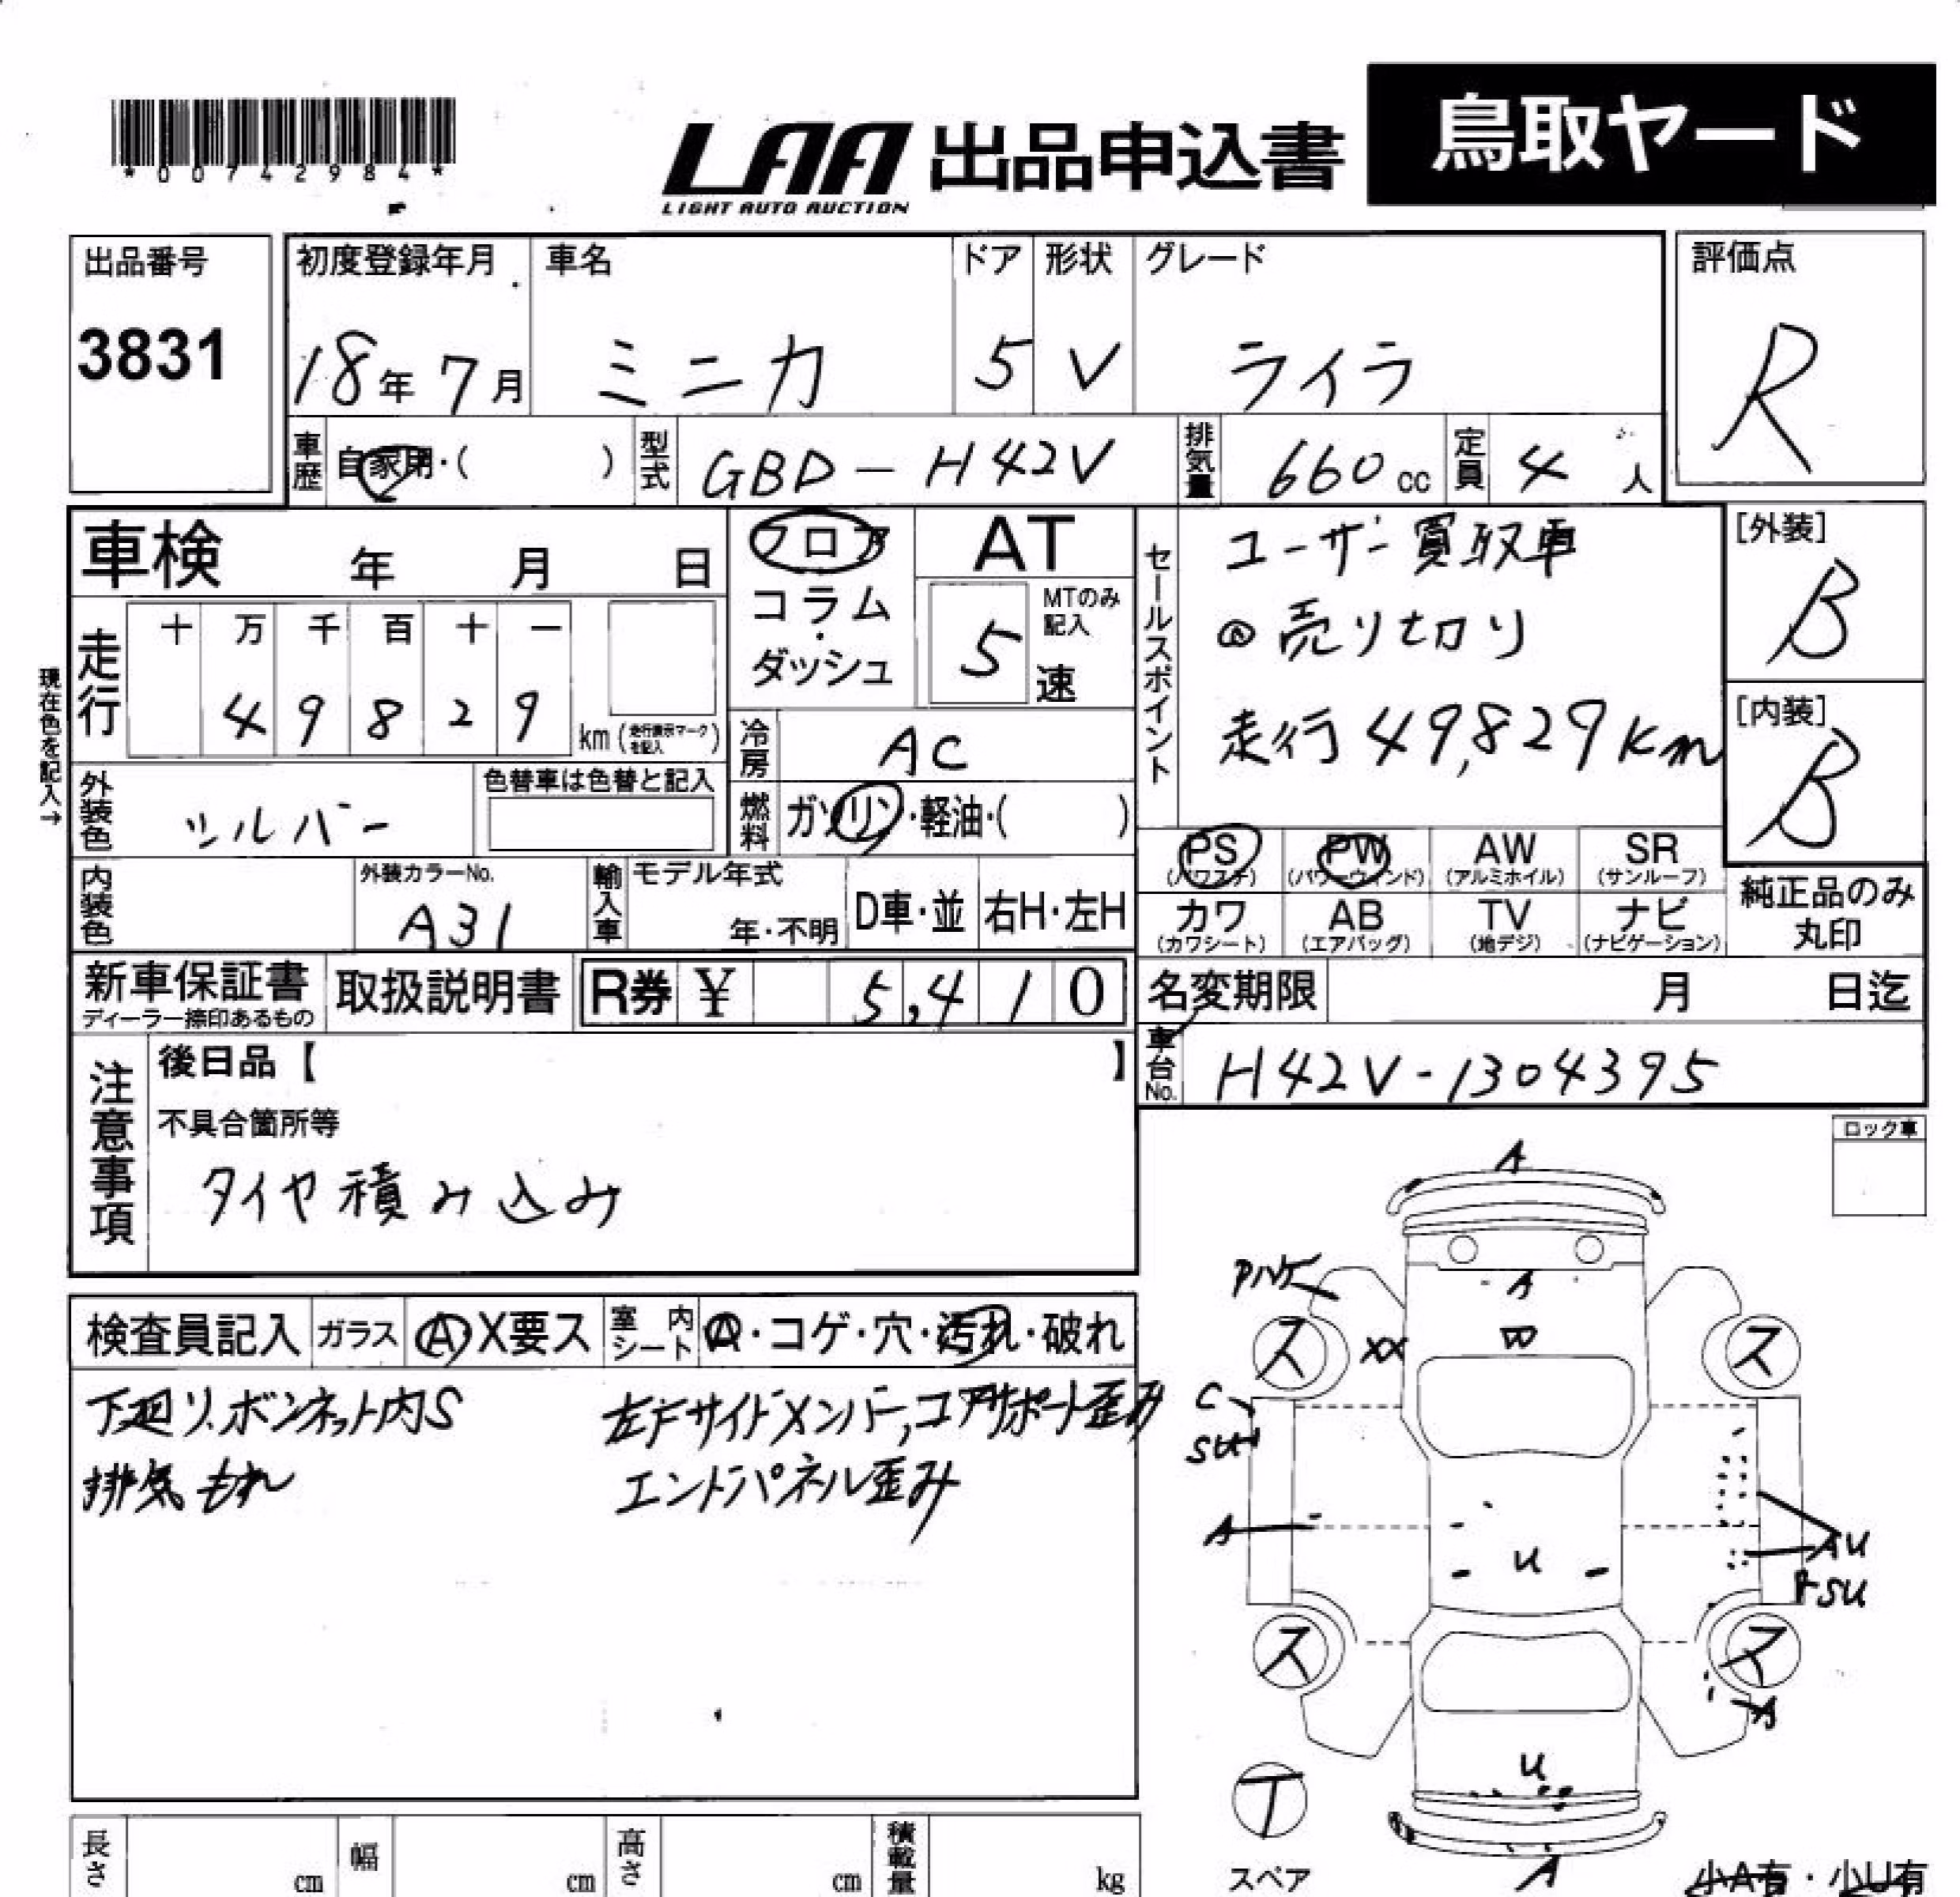 *00742984*
LAA 出品申込書
LIGHT AUTO AUCTION
鳥取ヤード
出品番号
3831
初度登録年月
18年 7月
車名
ミニカ
ドア
5
形状
V
グレード
ライラ
評価点
R
車歴
自家用・( )
型式
GBD-H42V
排気量
660 cc
定員
4 人
車検 年 月 日
フロア
コラム
・
ダッシュ
AT
MTのみ
記入
5 速
セールスポイント
ユーザー買取車
◎売り切り
走行49,829km
[外装]
B
[内装]
B
現在色を記入→
走行
十 万 千 百 十 一
4 9 8 2 9
km (走行表示マークを記入)
冷房
AC
外装色
シルバー
色替車は色替と記入
燃料
ガソリン・軽油・( )
PS
(パワステ)
PW
(パワーウィンド)
AW
(アルミホイル)
SR
(サンルーフ)
カワ
(カワシート)
AB
(エアバッグ)
TV
(地デジ)
ナビ
(ナビゲーション)
純正品のみ
丸印
内装色
外装カラーNo.
A31
輸入車
モデル年式
年・不明
D車・並
右H・左H
新車保証書
ディーラー捺印あるもの
取扱説明書
R券 ¥ 5,410
名変期限 月 日迄
車台No.
H42V-1304395
注意事項
後日品【 】
不具合箇所等
タイヤ積み込み
ロック車
検査員記入
ガラス
A・X要ス
室内シート
A・コゲ・穴・汚れ・破れ
下廻り、ボンネット内S
排気もれ
左Fサイドメンバー,コアサポート歪み
エンドパネル歪み
A
Pハゲ
A
ス
XX
B
ス
C
SU
A
U
AU
FSU
ス
ス
A
U
T
スペア
A
小A有・小U有
長さ cm
幅 cm
高さ cm
積載量 kg